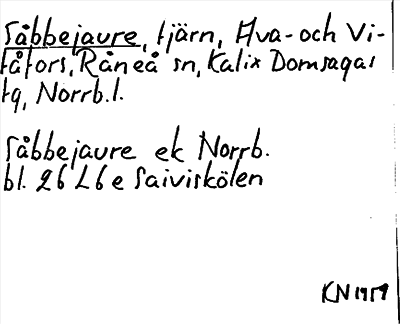 Såbbejaure, tjärn, Hva- och Vi-
tåfors, Råneå sn, Kalix Domsagas
tg, Norrb.l.
Såbbejaure ek Norrb.
bl. 26 L 6 e Saiviskölen
KN 1959